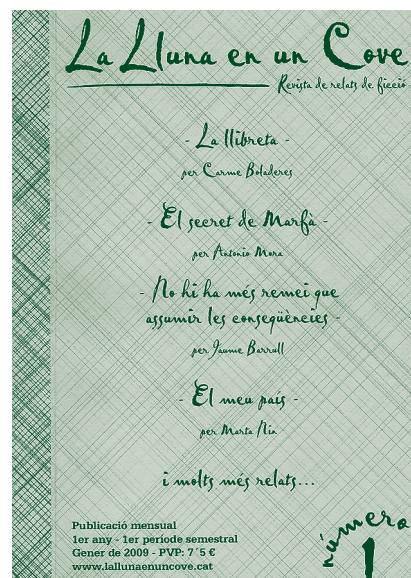 La Lluna en un Cove
Revista de relats de ficció
- La llibreta -
per Carme Boladeres
- El secret de Marfà -
per Antonio Mora
- No hi ha més remei que
assumir les conseqüències -
per Jaume Barrull
- El meu país -
per Marta Nin
i molts més relats...
Publicació mensual
1er any - 1er període semestral
Gener de 2009 - PVP: 7´5 €
www.lallunaenuncove.cat
número
1